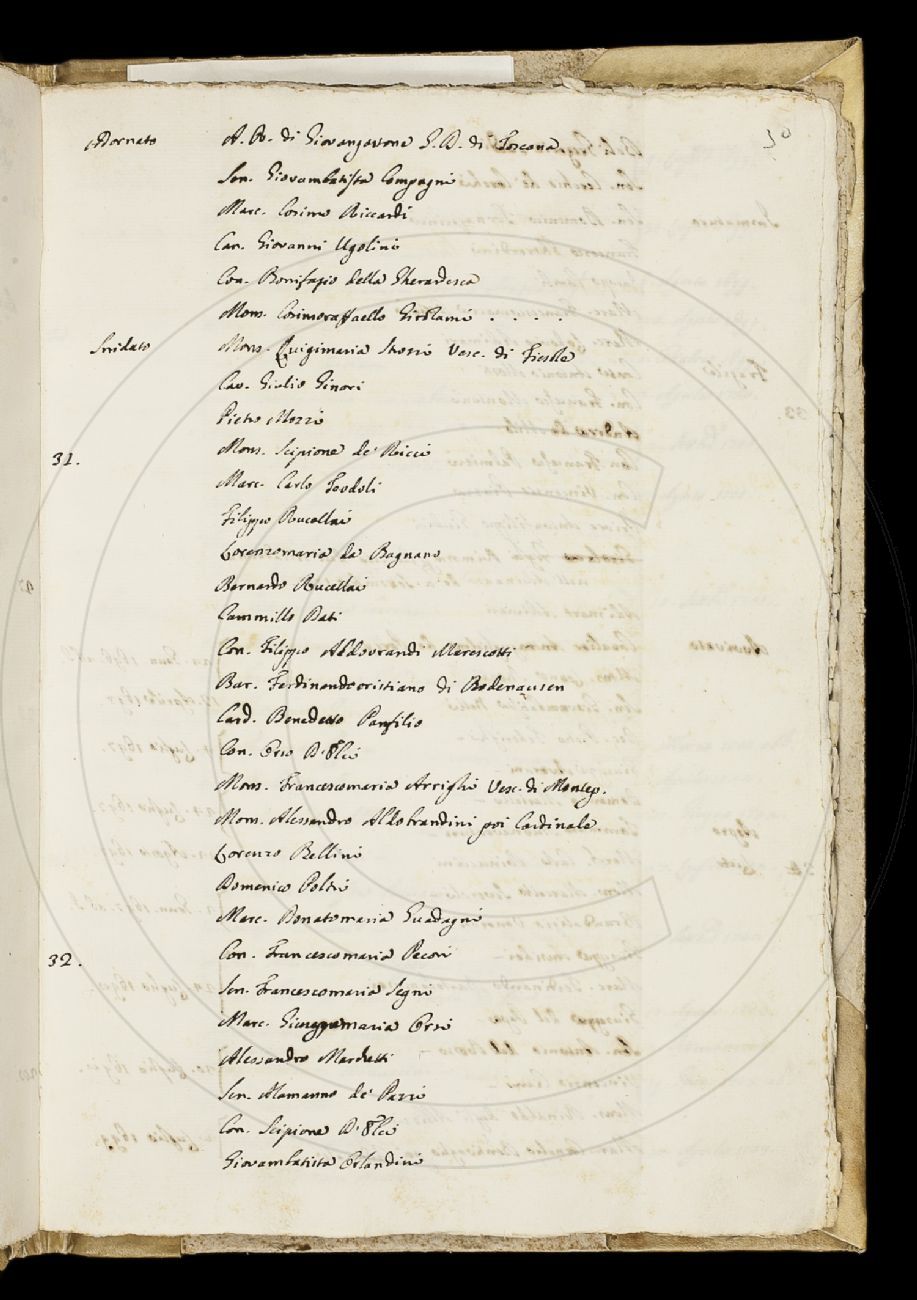 30
Adornato A. R. di Giovangastone G. D. di Toscana
Sen. Giovambatista Compagni
Marc. Cosimo Riccardi
Can. Giovanni Ugolini
Con. Bonifazio della Gherardesca
Mons. Cosimoraffaello Girolami . . . .
Mons. Luigimaria Strozzi Vesc. di Fiesole
Cav. Giulio Ginori
Pietro Mozzi
31. Mons. Scipione de' Ricci
Marc. Carlo Teodoli
Filippo Rucellai
Lorenzomaria da Bagnano
Bernardo Rucellai
Cammillo Dati
Con. Filippo Aldovrandi Marescotti
Bar. Ferdinandocristiano di Bodenausen
Card. Benedetto Panfilio
Con. Orso D'Elci
Mons. Francescomaria Arrighi Vesc. di Montep.
Mons. Alessandro Aldobrandini poi Cardinale
Lorenzo Bellini
Domenico Poltri
Marc. Donatomaria Guadagni
32. Con. Francescomaria Pecori
Sen. Francescomaria Segni
Marc. Giuseppemaria Orsi
Alessandro Marchetti
Sen. Alamanno de' Pazzi
Con. Scipione D'Elci
Giovambatista Orlandini